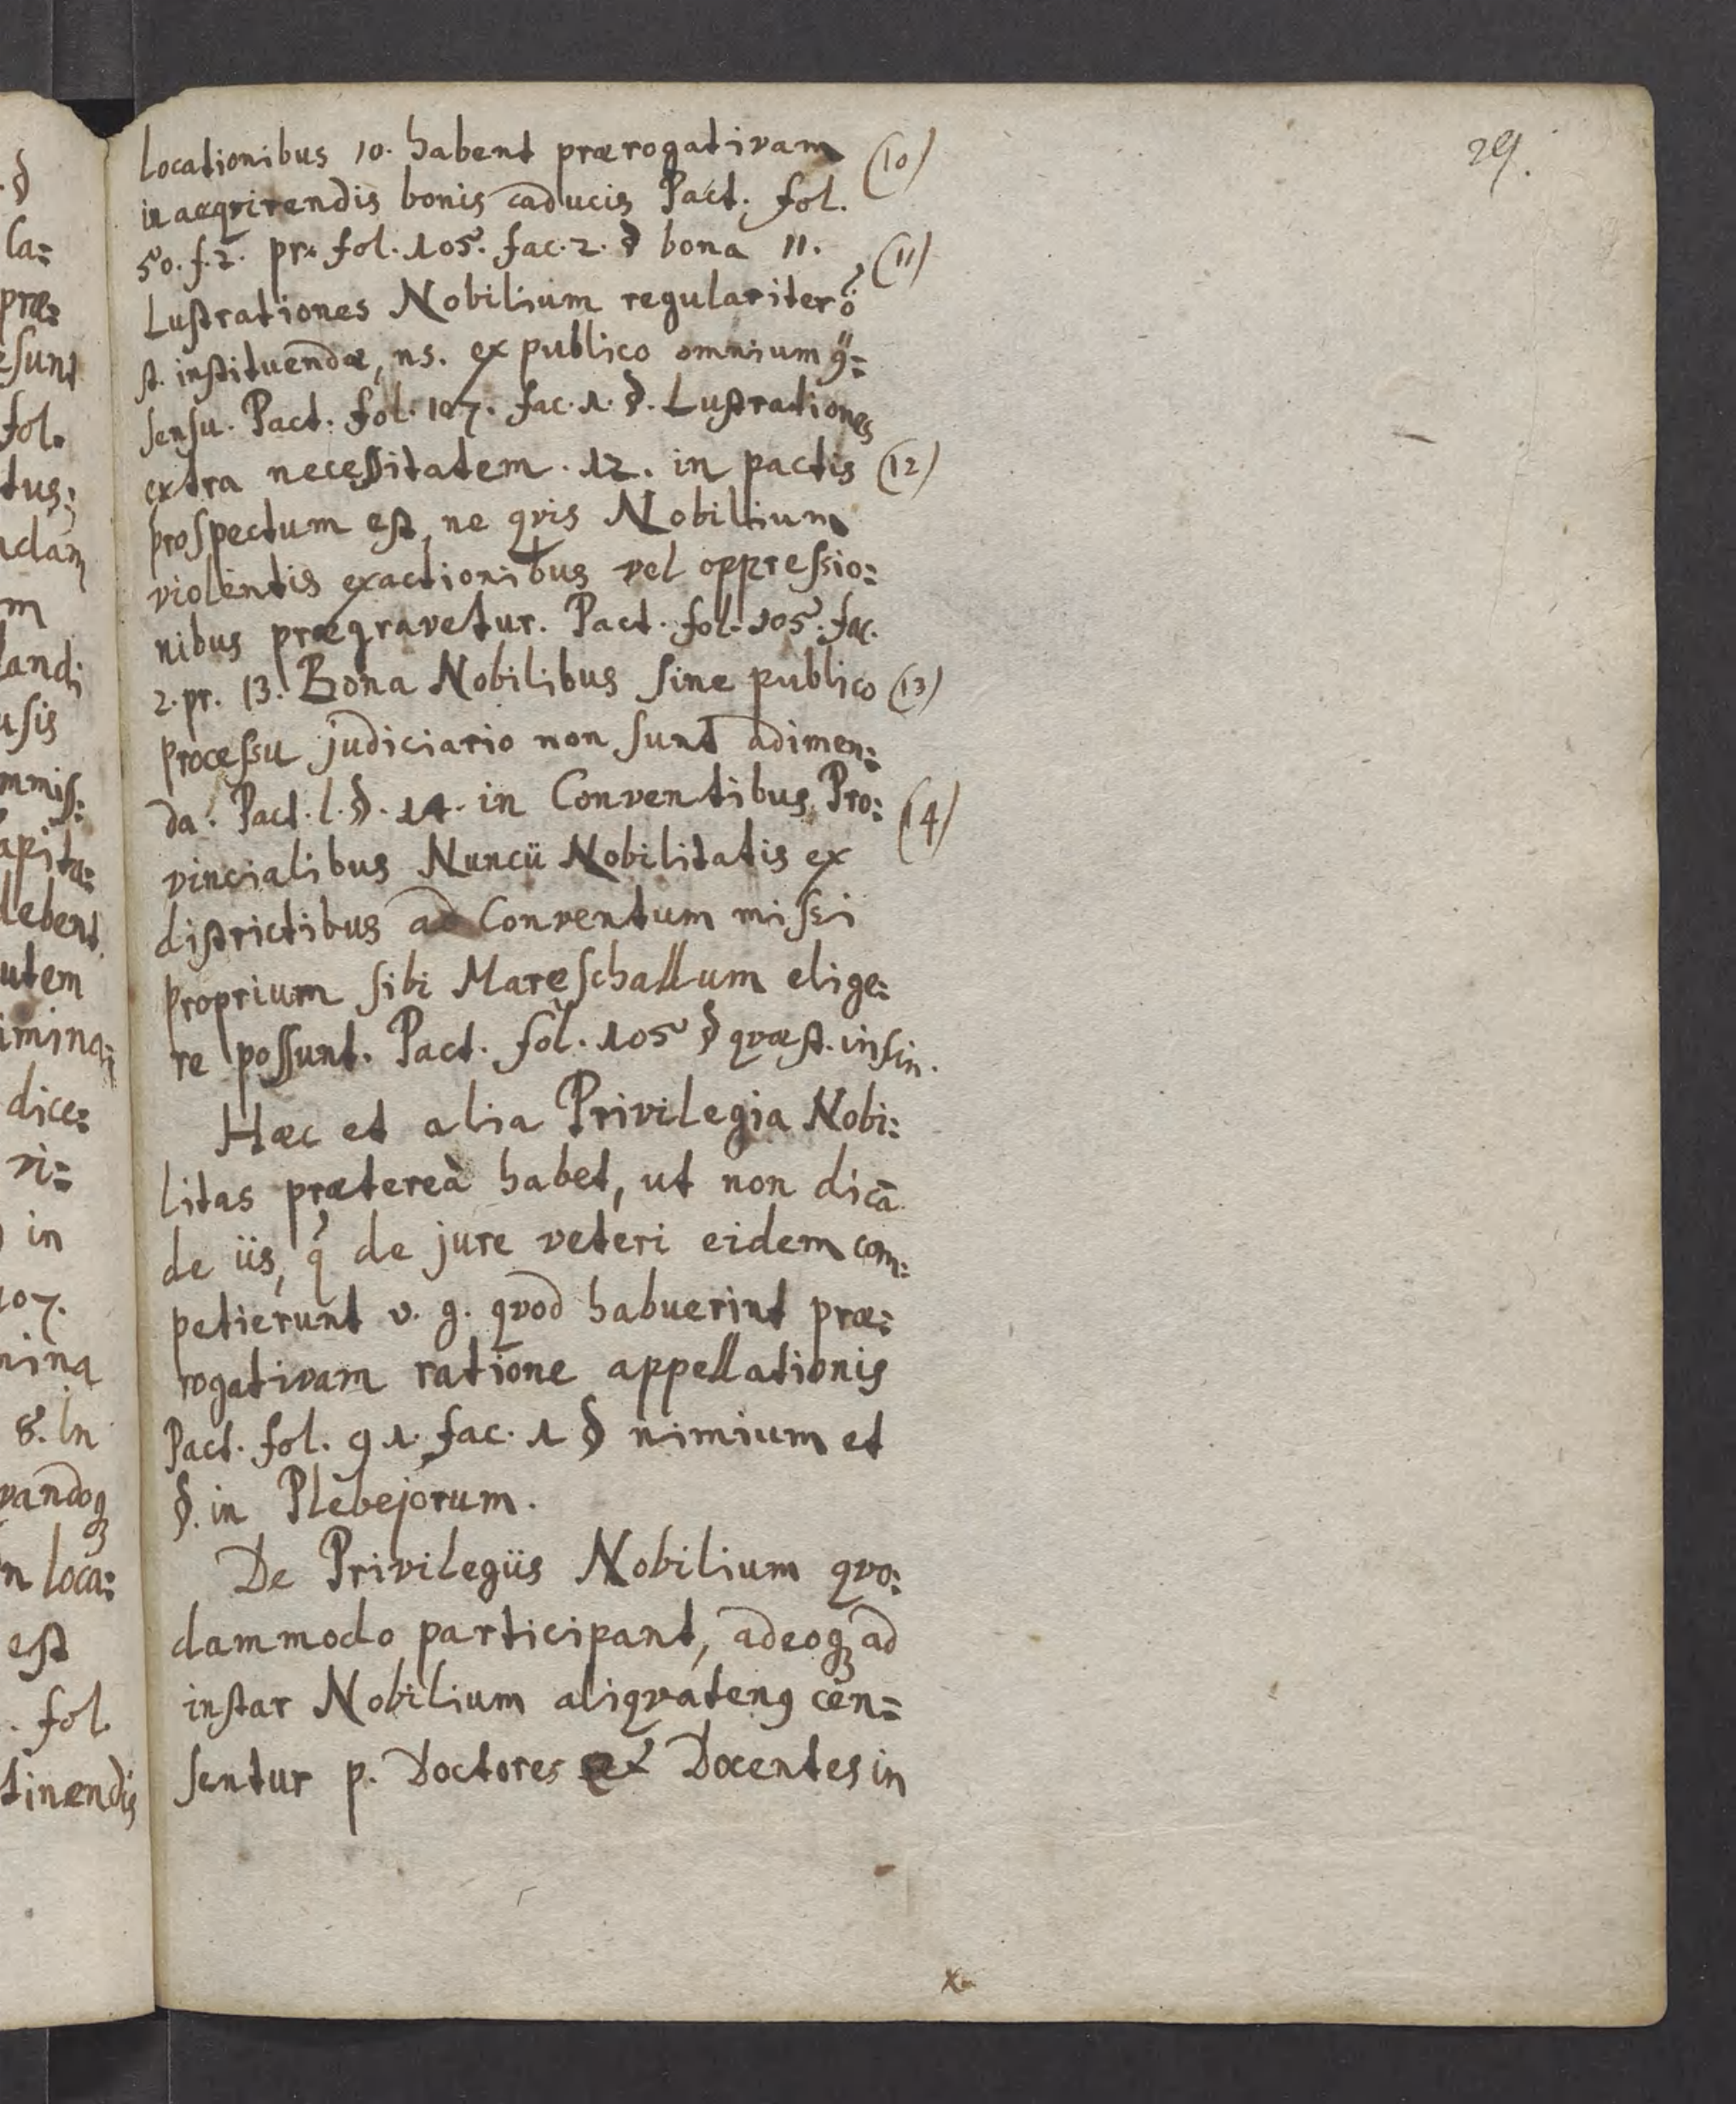 29.
locationibus 10. habent prærogativam (10)
in acqvirendis bonis caducis Pact. fol.
50. f. 2. pr. fol. 105. fac. 2. § bona 11. (11)
Lustrationes Nobilium regulariter
st. instituendæ, ns. ex publico omnium
sensu. Pact. fol. 107. fac. 1. §. Lustrationes
extra necessitatem. 12. in pactis (12)
prospectum est, ne qvis Nobilium
violentis exactionibus vel oppressio:
nibus prægravetur. Pact. fol. 105. fac.
2. pr. 13. Bona Nobilibus sine publico (13)
processu judiciario non sunt adimen:
da. Pact. l. §. 14. in Conventibus Pro: (14)
vincialibus Nuncii Nobilitatis ex
districtibus ad Conventum missi
proprium sibi Mareschallum elige:
re possunt. Pact. fol. 105 § qvæst. in fin.
Hæc et alia Privilegia Nobi:
litas prætereà habet, ut non dicā
de iis, q̓ de jure veteri eidem com:
petierunt v. g. qvod habuerint præ:
rogativam ratione appellationis
Pact. fol. 91. fac. 1 § nimium et
§. in Plebejorum.
De Privilegiis Nobilium qvo:
dammodo participant, adeoqȝ ad
instar Nobilium aliqvatenꝰ cen=
sentur p. Doctores et Docentes in
x.
la:
præ:
esunt
fol.
tus;
ndam
m
landi
usis
mmiss:
apita:
debent
utem
imina;
dice:
vi=
in
107.
mina
8. In
vandoqȝ
n loca:
est
. fol.
tinendis